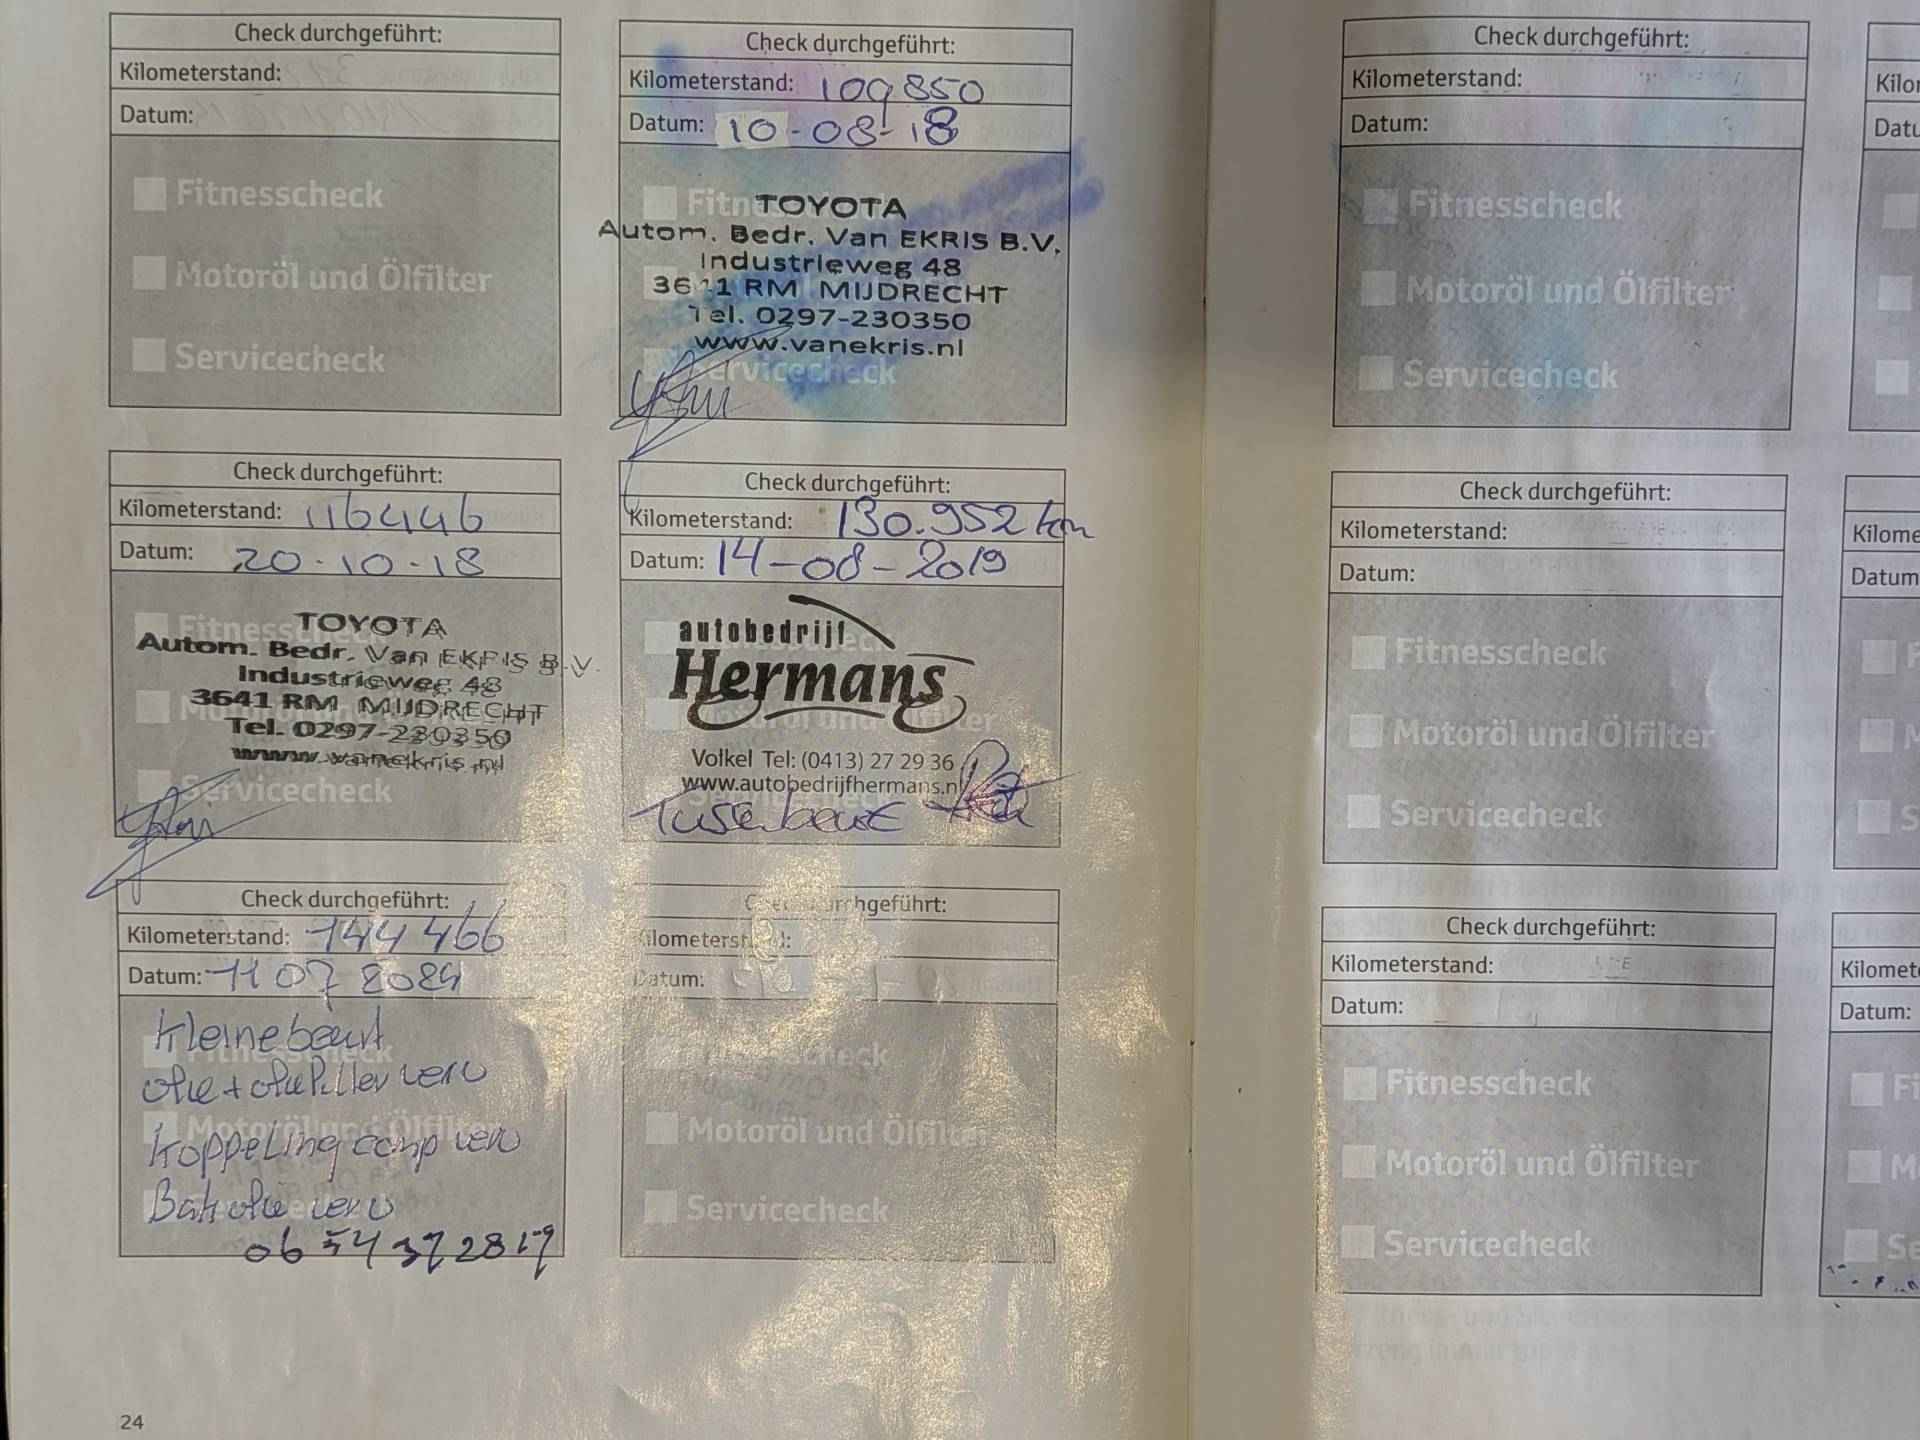 Check durchgeführt:
Kilometerstand:
Datum:
Fitnesscheck
Motoröl und Ölfilter
Servicecheck
Check durchgeführt:
Kilometerstand: 109850
Datum: 10-08-18
TOYOTA
Autom. Bedr. Van EKRIS B.V.
Industrieweg 48
3641 RM MIJDRECHT
Tel. 0297-230350
www.vanekris.nl
Servicecheck
Check durchgeführt:
Kilometerstand: 116446
Datum: 20-10-18
Fitnesscheck
TOYOTA
Autom. Bedr. Van EKRIS B.V.
Industrieweg 48
3641 RM MIJDRECHT
Tel. 0297-230350
www.vanekris.nl
Servicecheck
Check durchgeführt:
Kilometerstand: 130.952 km
Datum: 14-08-2019
autobedrijf
Hermans
Volkel Tel: (0413) 27 29 36
www.autobedrijfhermans.nl
Check durchgeführt:
Kilometerstand: 144 466
Datum: 11 07 2024
Kleine beurt
olie + oliefilter verv
Motoröl und Ölfilter
Koppeling comp verv
Bak olie verv
Check durchgeführt:
Kilometerstand:
Datum:
Fitnesscheck
Motoröl und Ölfilter
Servicecheck
24
Check durchgeführt:
Kilometerstand:
Datum:
Fitnesscheck
Motoröl und Ölfilter
Servicecheck
Check durchgeführt:
Kilometerstand:
Datum:
Fitnesscheck
Motoröl und Ölfilter
Servicecheck
Check durchgeführt:
Kilometerstand:
Datum:
Fitnesscheck
Motoröl und Ölfilter
Servicecheck